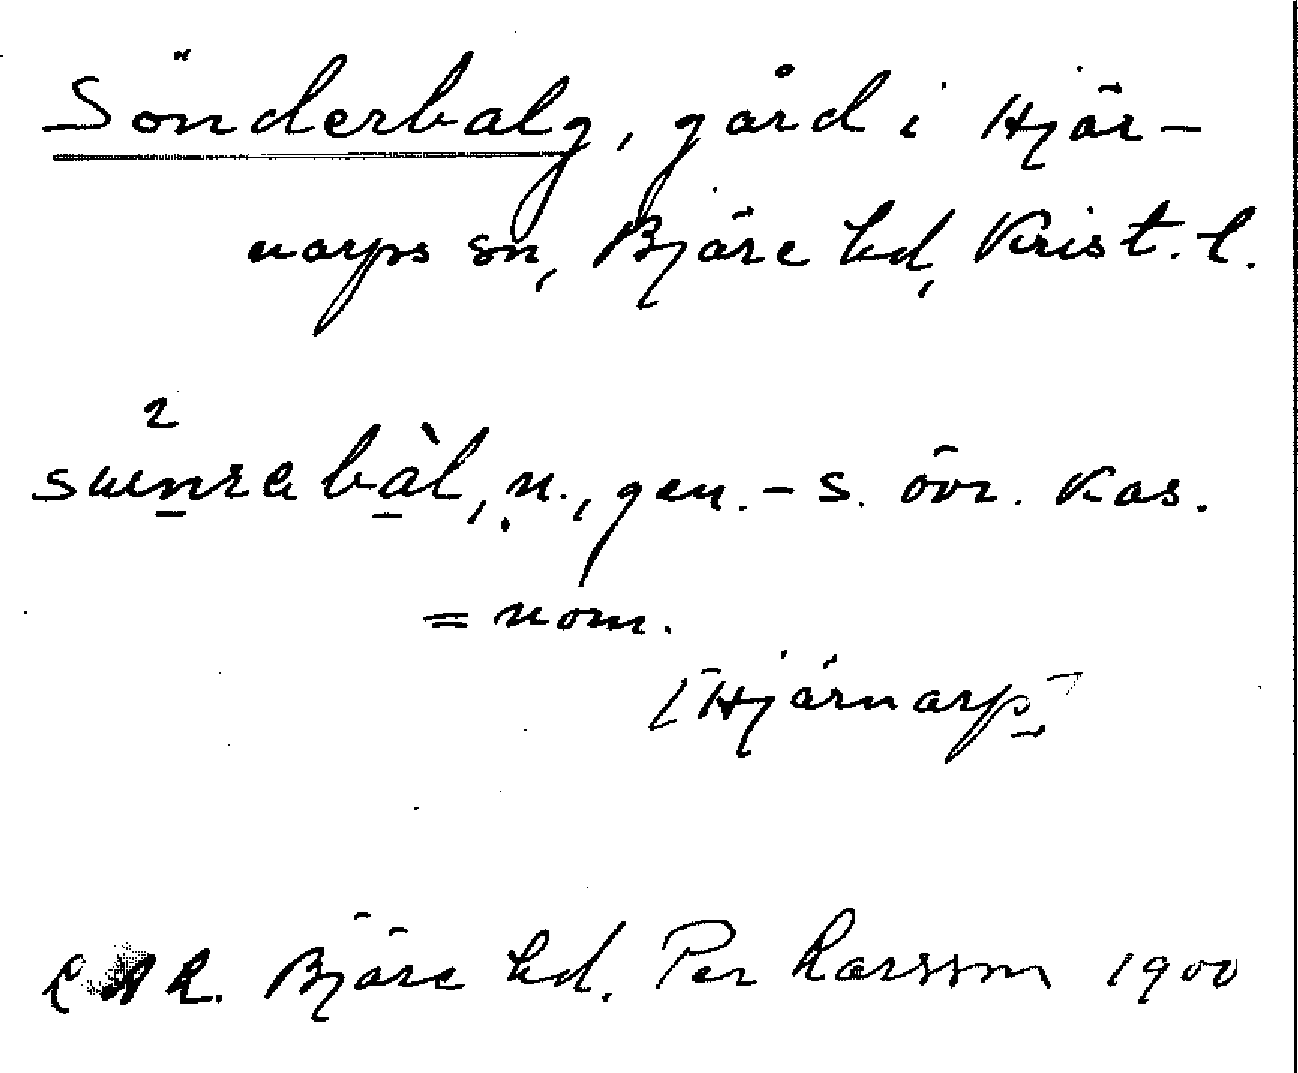 Sönderbalg, gård i Hjär-
narps sn, Bjäre hd, Krist. l.
bàl, n., gen. - s. övr. kas.
= nom.
[Hjärnarp]
Bjäre hd. Per Larsson 1900